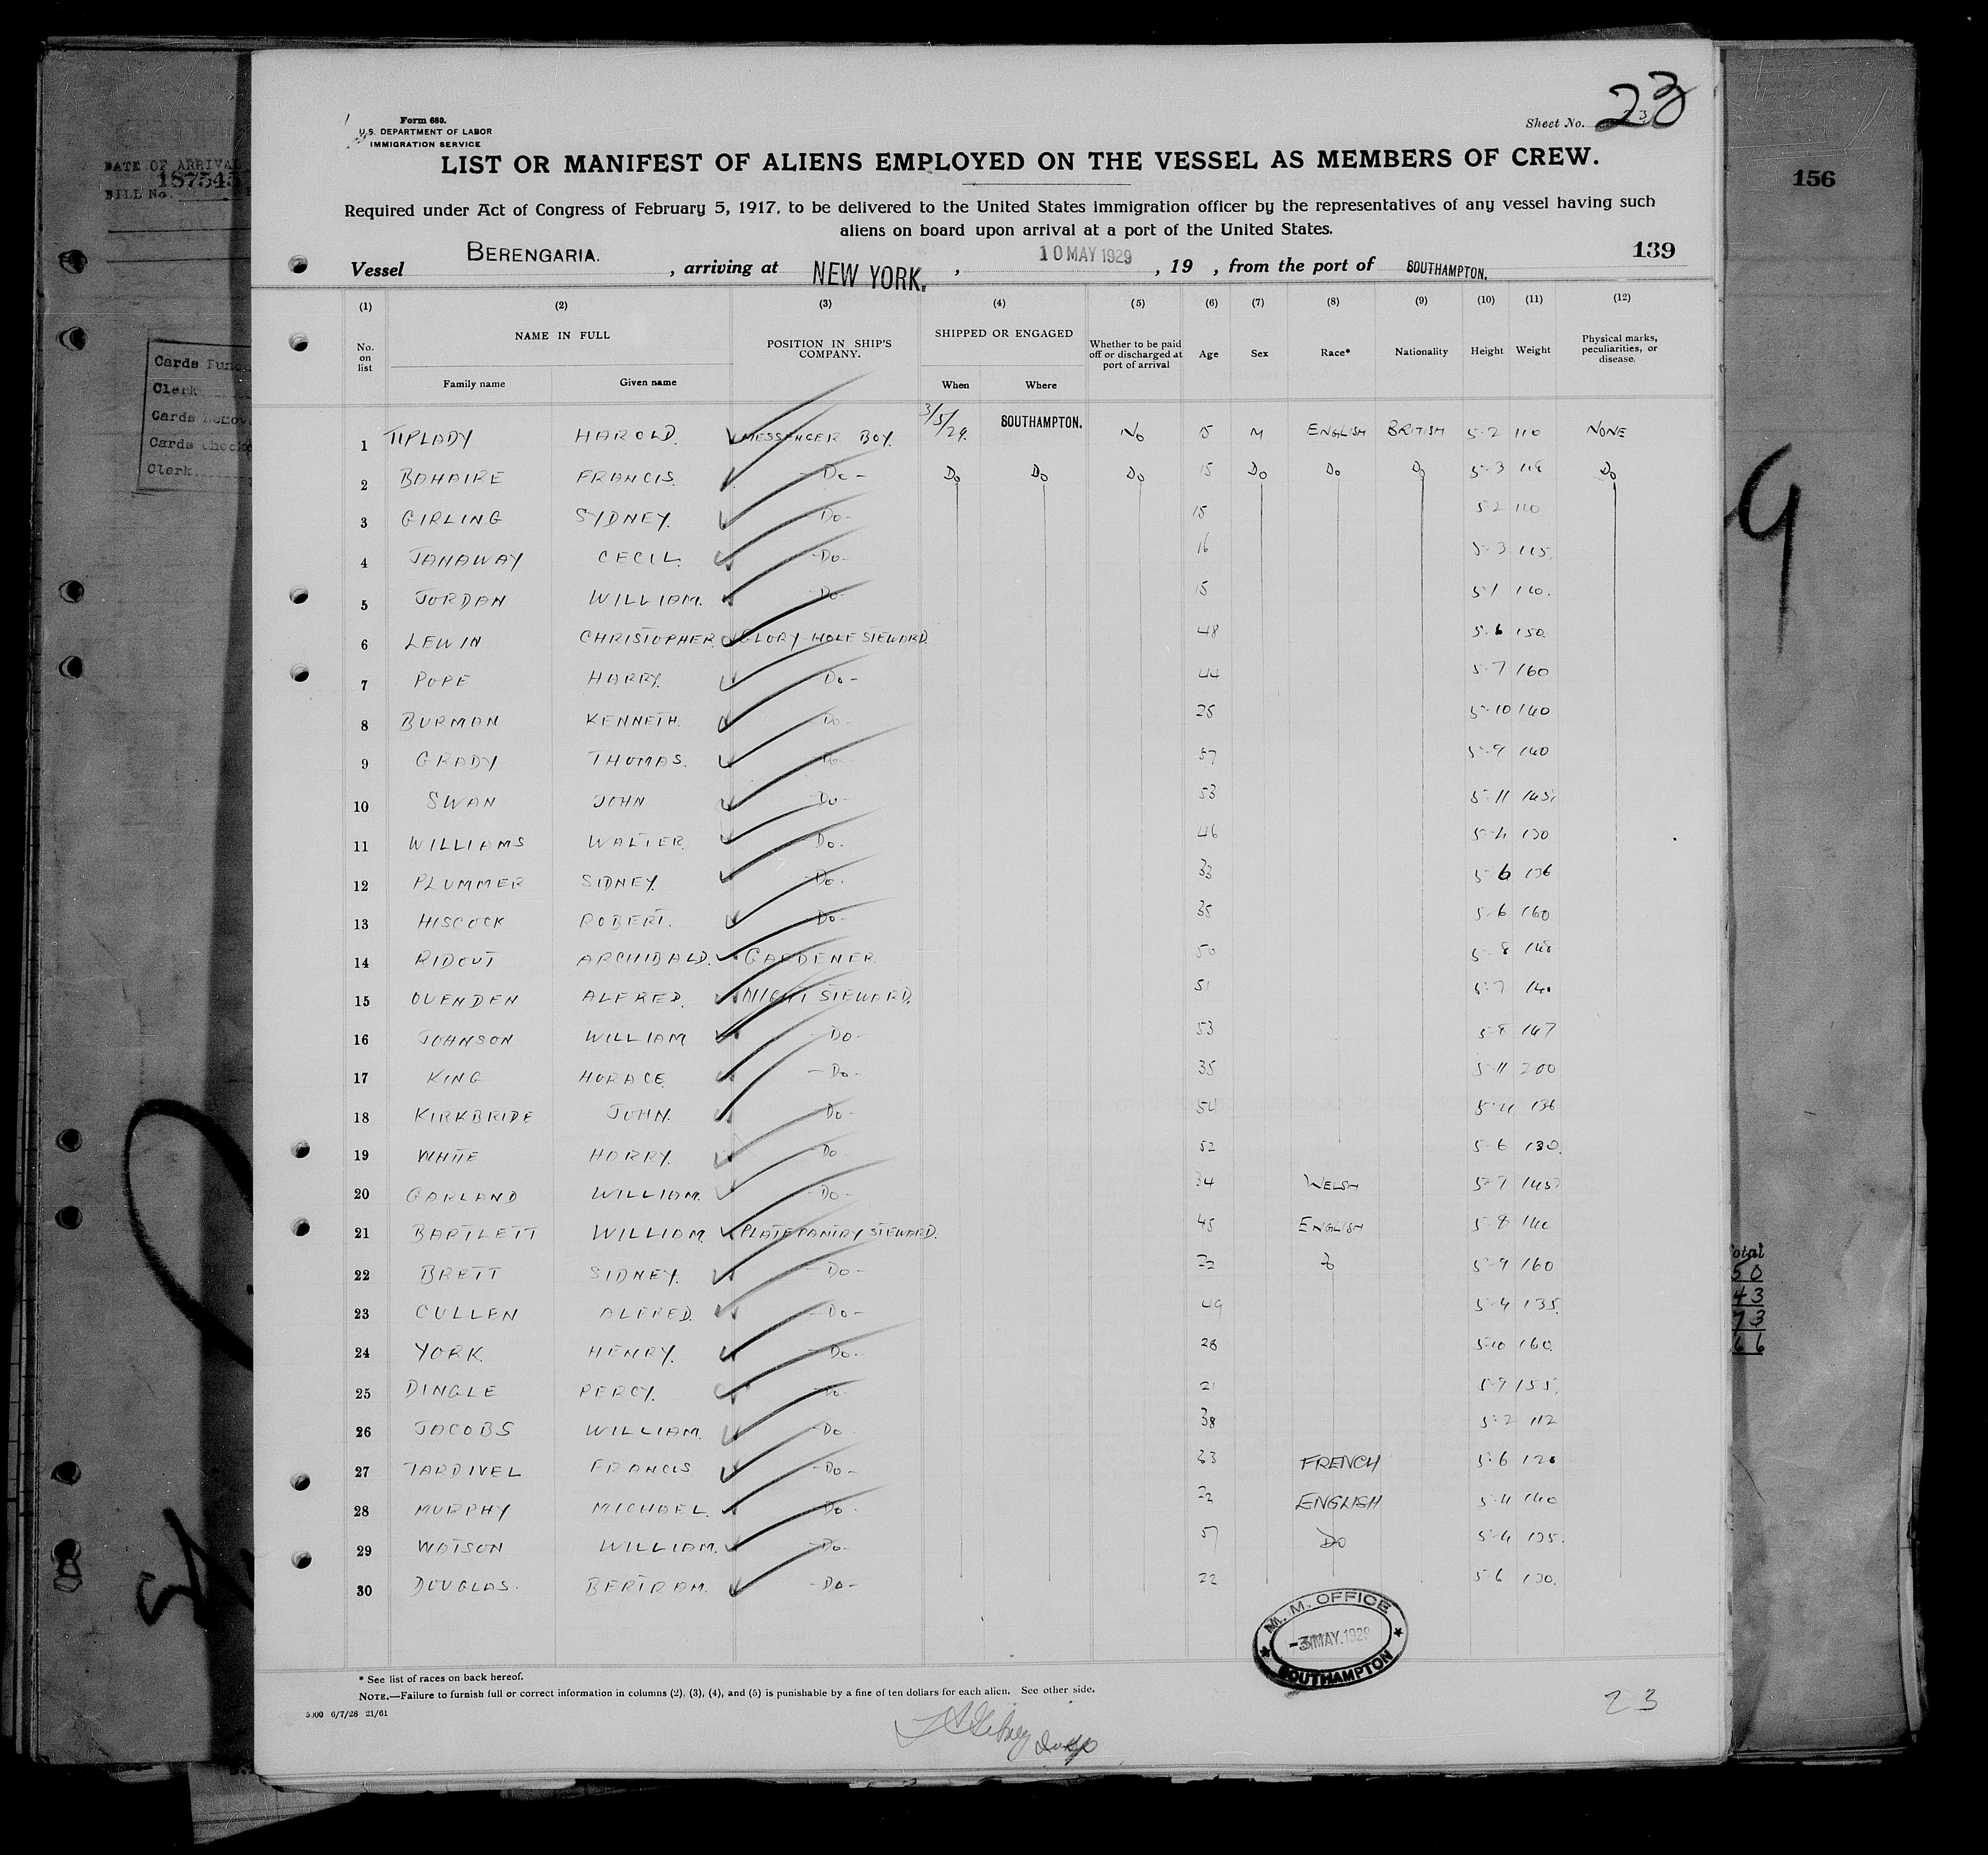 DATE OF ARRIVAL
187545
BILL No.
Cards Punc
Clerk
Cards Remov
Cards Checke
Clerk
156
9
Total
50
43
73
66
Form 680.
U.S. DEPARTMENT OF LABOR
IMMIGRATION SERVICE
Sheet No. 23
LIST OR MANIFEST OF ALIENS EMPLOYED ON THE VESSEL AS MEMBERS OF CREW.
Required under Act of Congress of February 5, 1917, to be delivered to the United States immigration officer by the representatives of any vessel having such
aliens on board upon arrival at a port of the United States.
139
Vessel BERENGARIA. , arriving at NEW YORK. , 10 MAY 1929 , 19 , from the port of SOUTHAMPTON.
(1) (2) (3) (4) (5) (6) (7) (8) (9) (10) (11) (12)
No. on list NAME IN FULL POSITION IN SHIP'S COMPANY. SHIPPED OR ENGAGED Whether to be paid off or discharged at port of arrival Age Sex Race* Nationality Height Weight Physical marks, peculiarities, or disease.
Family name Given name When Where
1 TIPLADY HAROLD. MESSENGER BOY. 3/5/29. SOUTHAMPTON. NO 15 M ENGLISH BRITISH 5-2 110 NONE
2 BAHAIRE FRANCIS. -Do- Do Do Do 15 Do Do Do 5-3 118 Do
3 GIRLING SYDNEY. Do- 15 5-2 110
4 JANAWAY CECIL. -Do- 16 5-3 115
5 JORDAN WILLIAM. -Do- 15 5-1 110.
6 LEWIN CHRISTOPHER. GLORY-HOLE STEWARD. 48 5-6 150
7 POPE HARRY. Do- 44 5-7 160
8 BURMAN KENNETH. Do- 25 5-10 140
9 GRADY THOMAS. Do- 57 5-9 140
10 SWAN JOHN -Do- 53 5-11 145
11 WILLIAMS WALTER. Do. 46 5-4 130
12 PLUMMER SIDNEY. -Do. 33 5-6 136
13 HISCOCK ROBERT. -Do- 35 5-6 160
14 RIDOUT ARCHIBALD. GARDENER 50 5-8 148
15 OVENDEN ALFRED. NIGHT STEWARD. 51 5-7 140
16 JOHNSON WILLIAM -Do- 53 5-8 147
17 KING HORACE -Do- 35 5-11 200
18 KIRKBRIDE JOHN. Do- 54 5-4 136
19 WHITE HARRY. Do 52 5-6 130.
20 GARLAND WILLIAM. -Do- 34 WELSH 5-7 145
21 BARTLETT WILLIAM. PLATE PANTRY STEWARD. 45 ENGLISH 5-8 140
22 BRETT SIDNEY. -Do- 22 Do 5-9 160
23 CULLEN ALFRED. -Do- 49 5-4 135.
24 YORK HENRY. -Do- 28 5-10 160.
25 DINGLE PERCY. -Do- 21 5-9 155.
26 JACOBS WILLIAM. -Do 38 5-2 112
27 TARDIVEL FRANCIS -Do- FRENCH 5-6 120
28 MURPHY MICHAEL. Do- 22 ENGLISH 5-4 140
29 WATSON WILLIAM. -Do- 57 DO 5-4 135.
30 DOUGLAS. BERTRAM. -Do- 22 5-6 130.
M. M. OFFICE
-3 MAY.1929
SOUTHAMPTON
* See list of races on back hereof.
NOTE.—Failure to furnish full or correct information in columns (2), (3), (4), and (5) is punishable by a fine of ten dollars for each alien. See other side.
5000 6/7/28 21/61
23